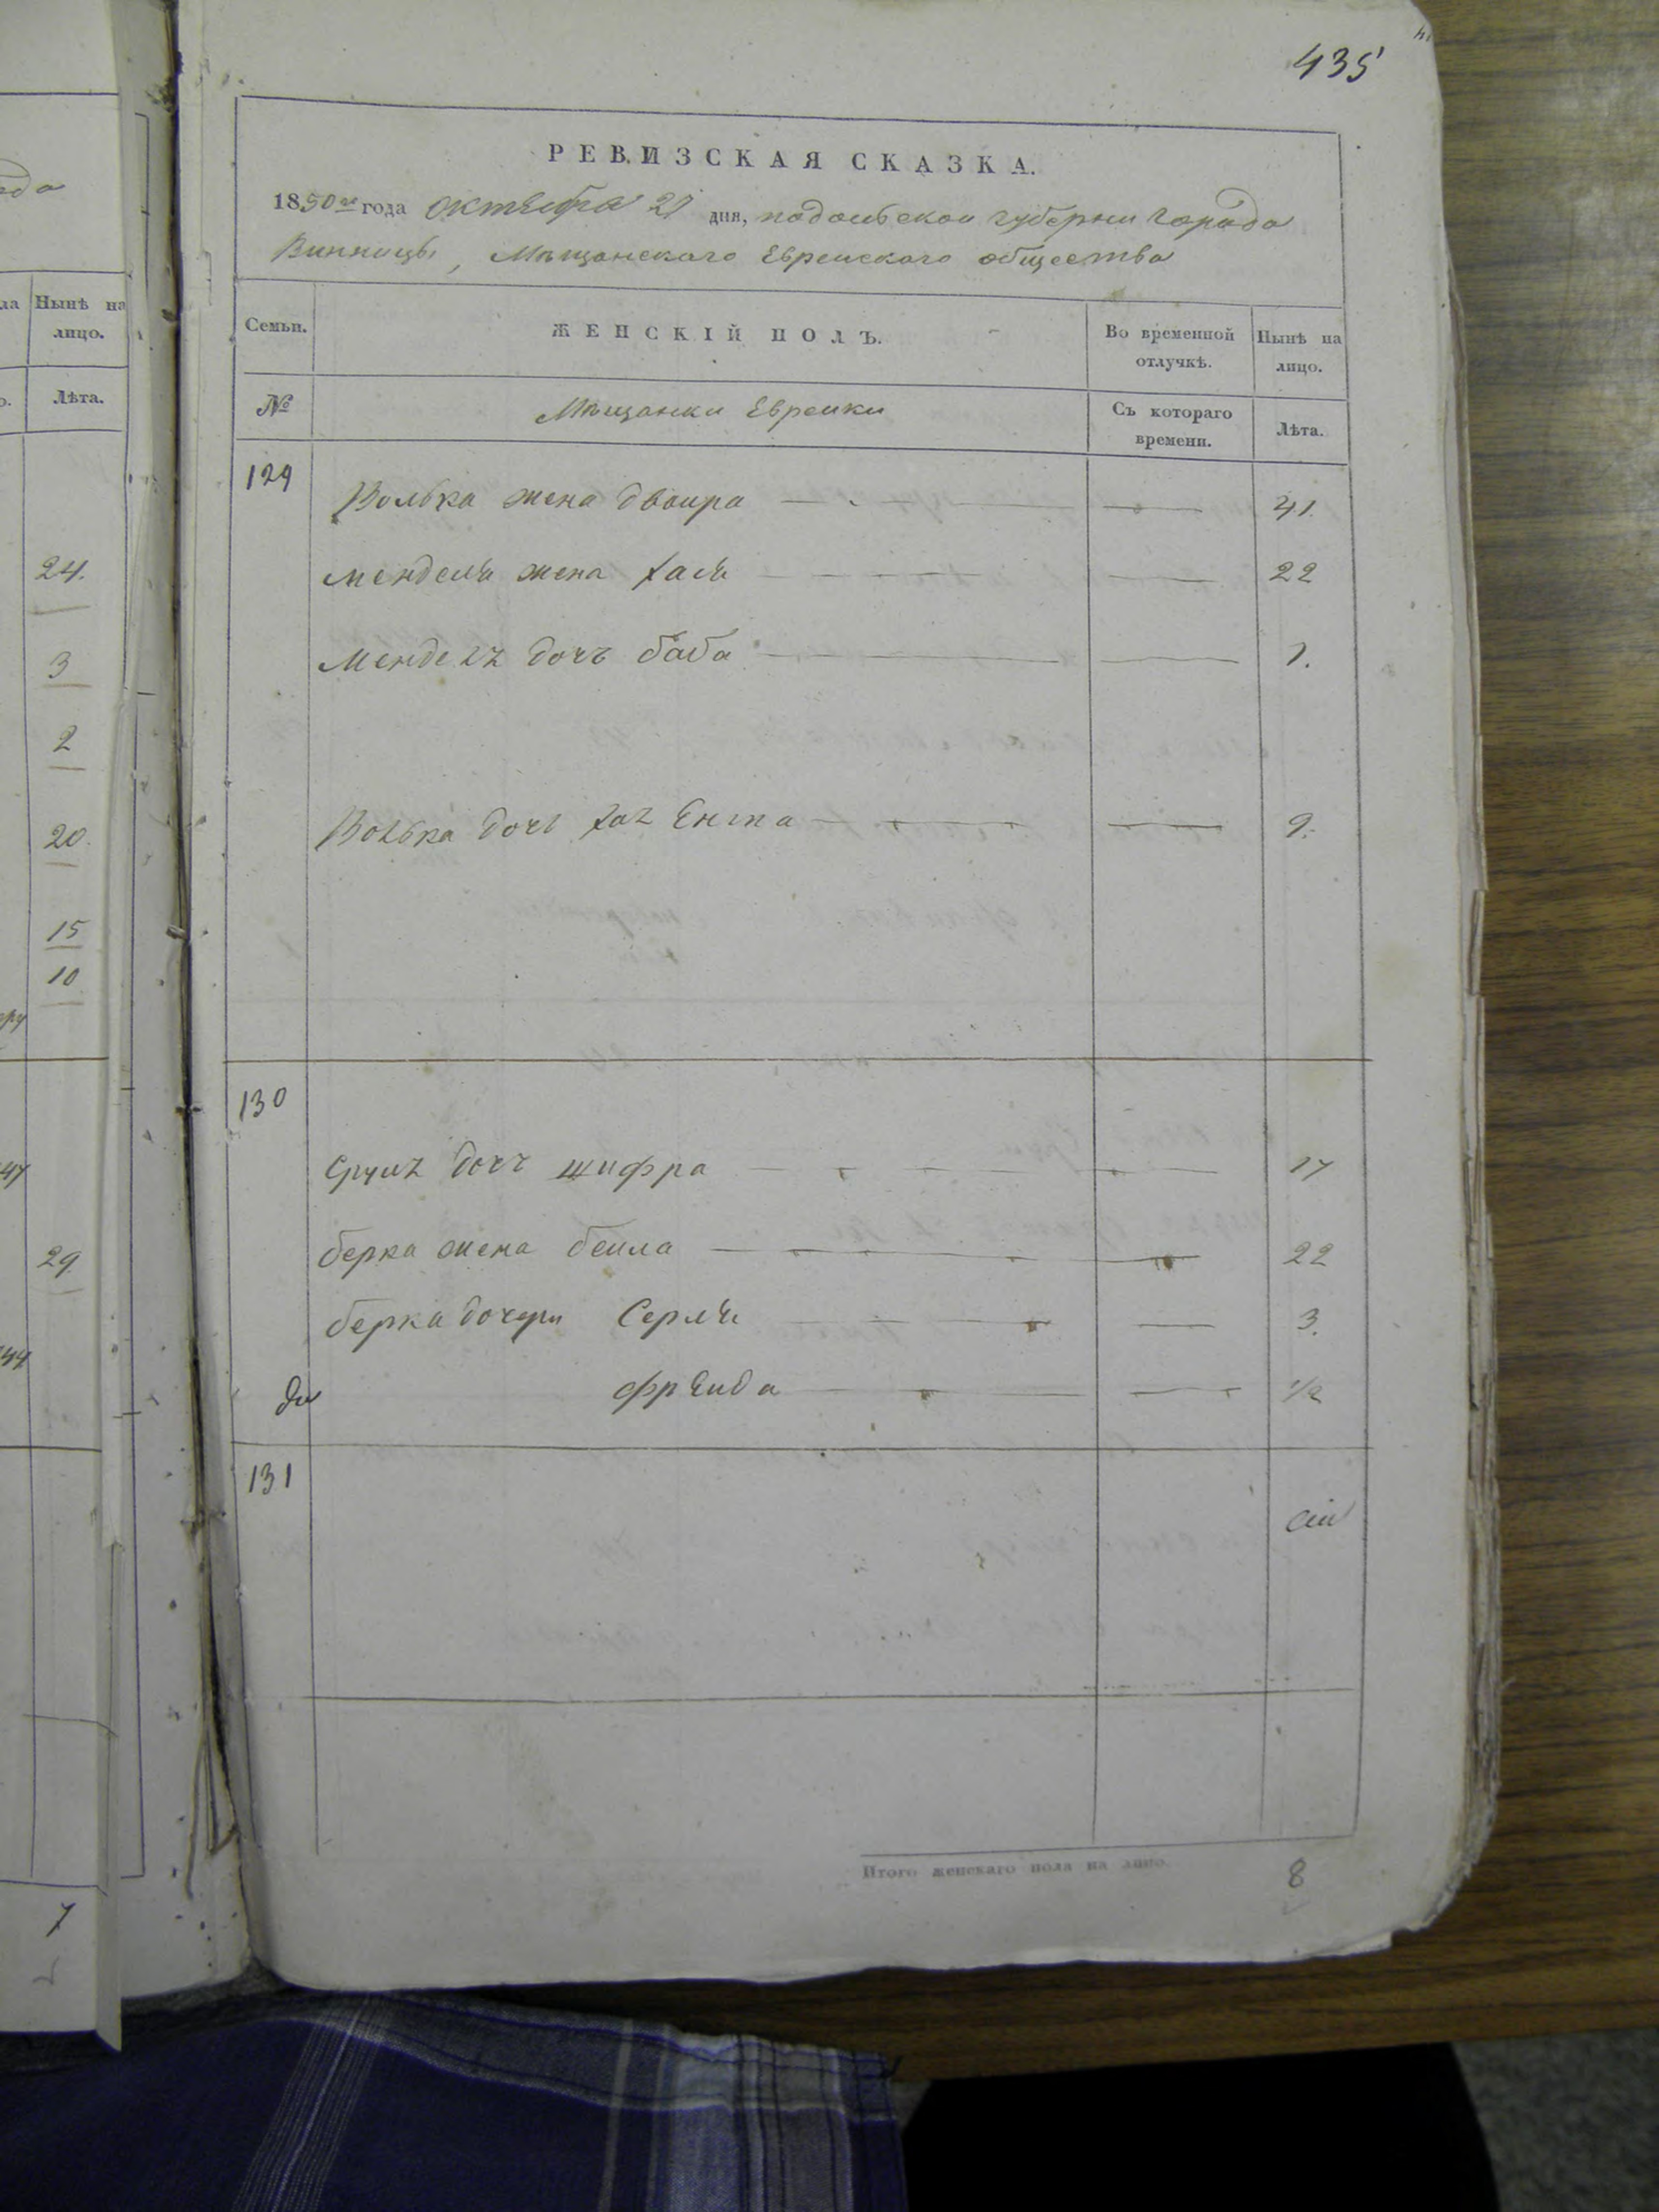 435
РЕВИЗСКАЯ СКАЗКА.
1850го года октября 21 дня, подольской губернии города
Винницы, Мѣщанскаго Еврейскаго общества
Семьи.
ЖЕНСКІЙ ПОЛЪ.
Во временной отлучкѣ.
Нынѣ на лицо.
№
Мѣщанки Еврейки
Съ котораго времени.
Лѣта.
129
Волька жена двоира 41.
менделя жена хая 22
Мендель дочь баба 1.
Волька дочь Ента 9.
130
Сруль дочь шифра 17
берка жена бейла 22
берка дочери Серля 3.
фрейда 1/2
131
Итого женскаго пола на лицо. 8
Нынѣ на
лицо.
Лѣта.
24.
3
2
20.
15
10
29.
7